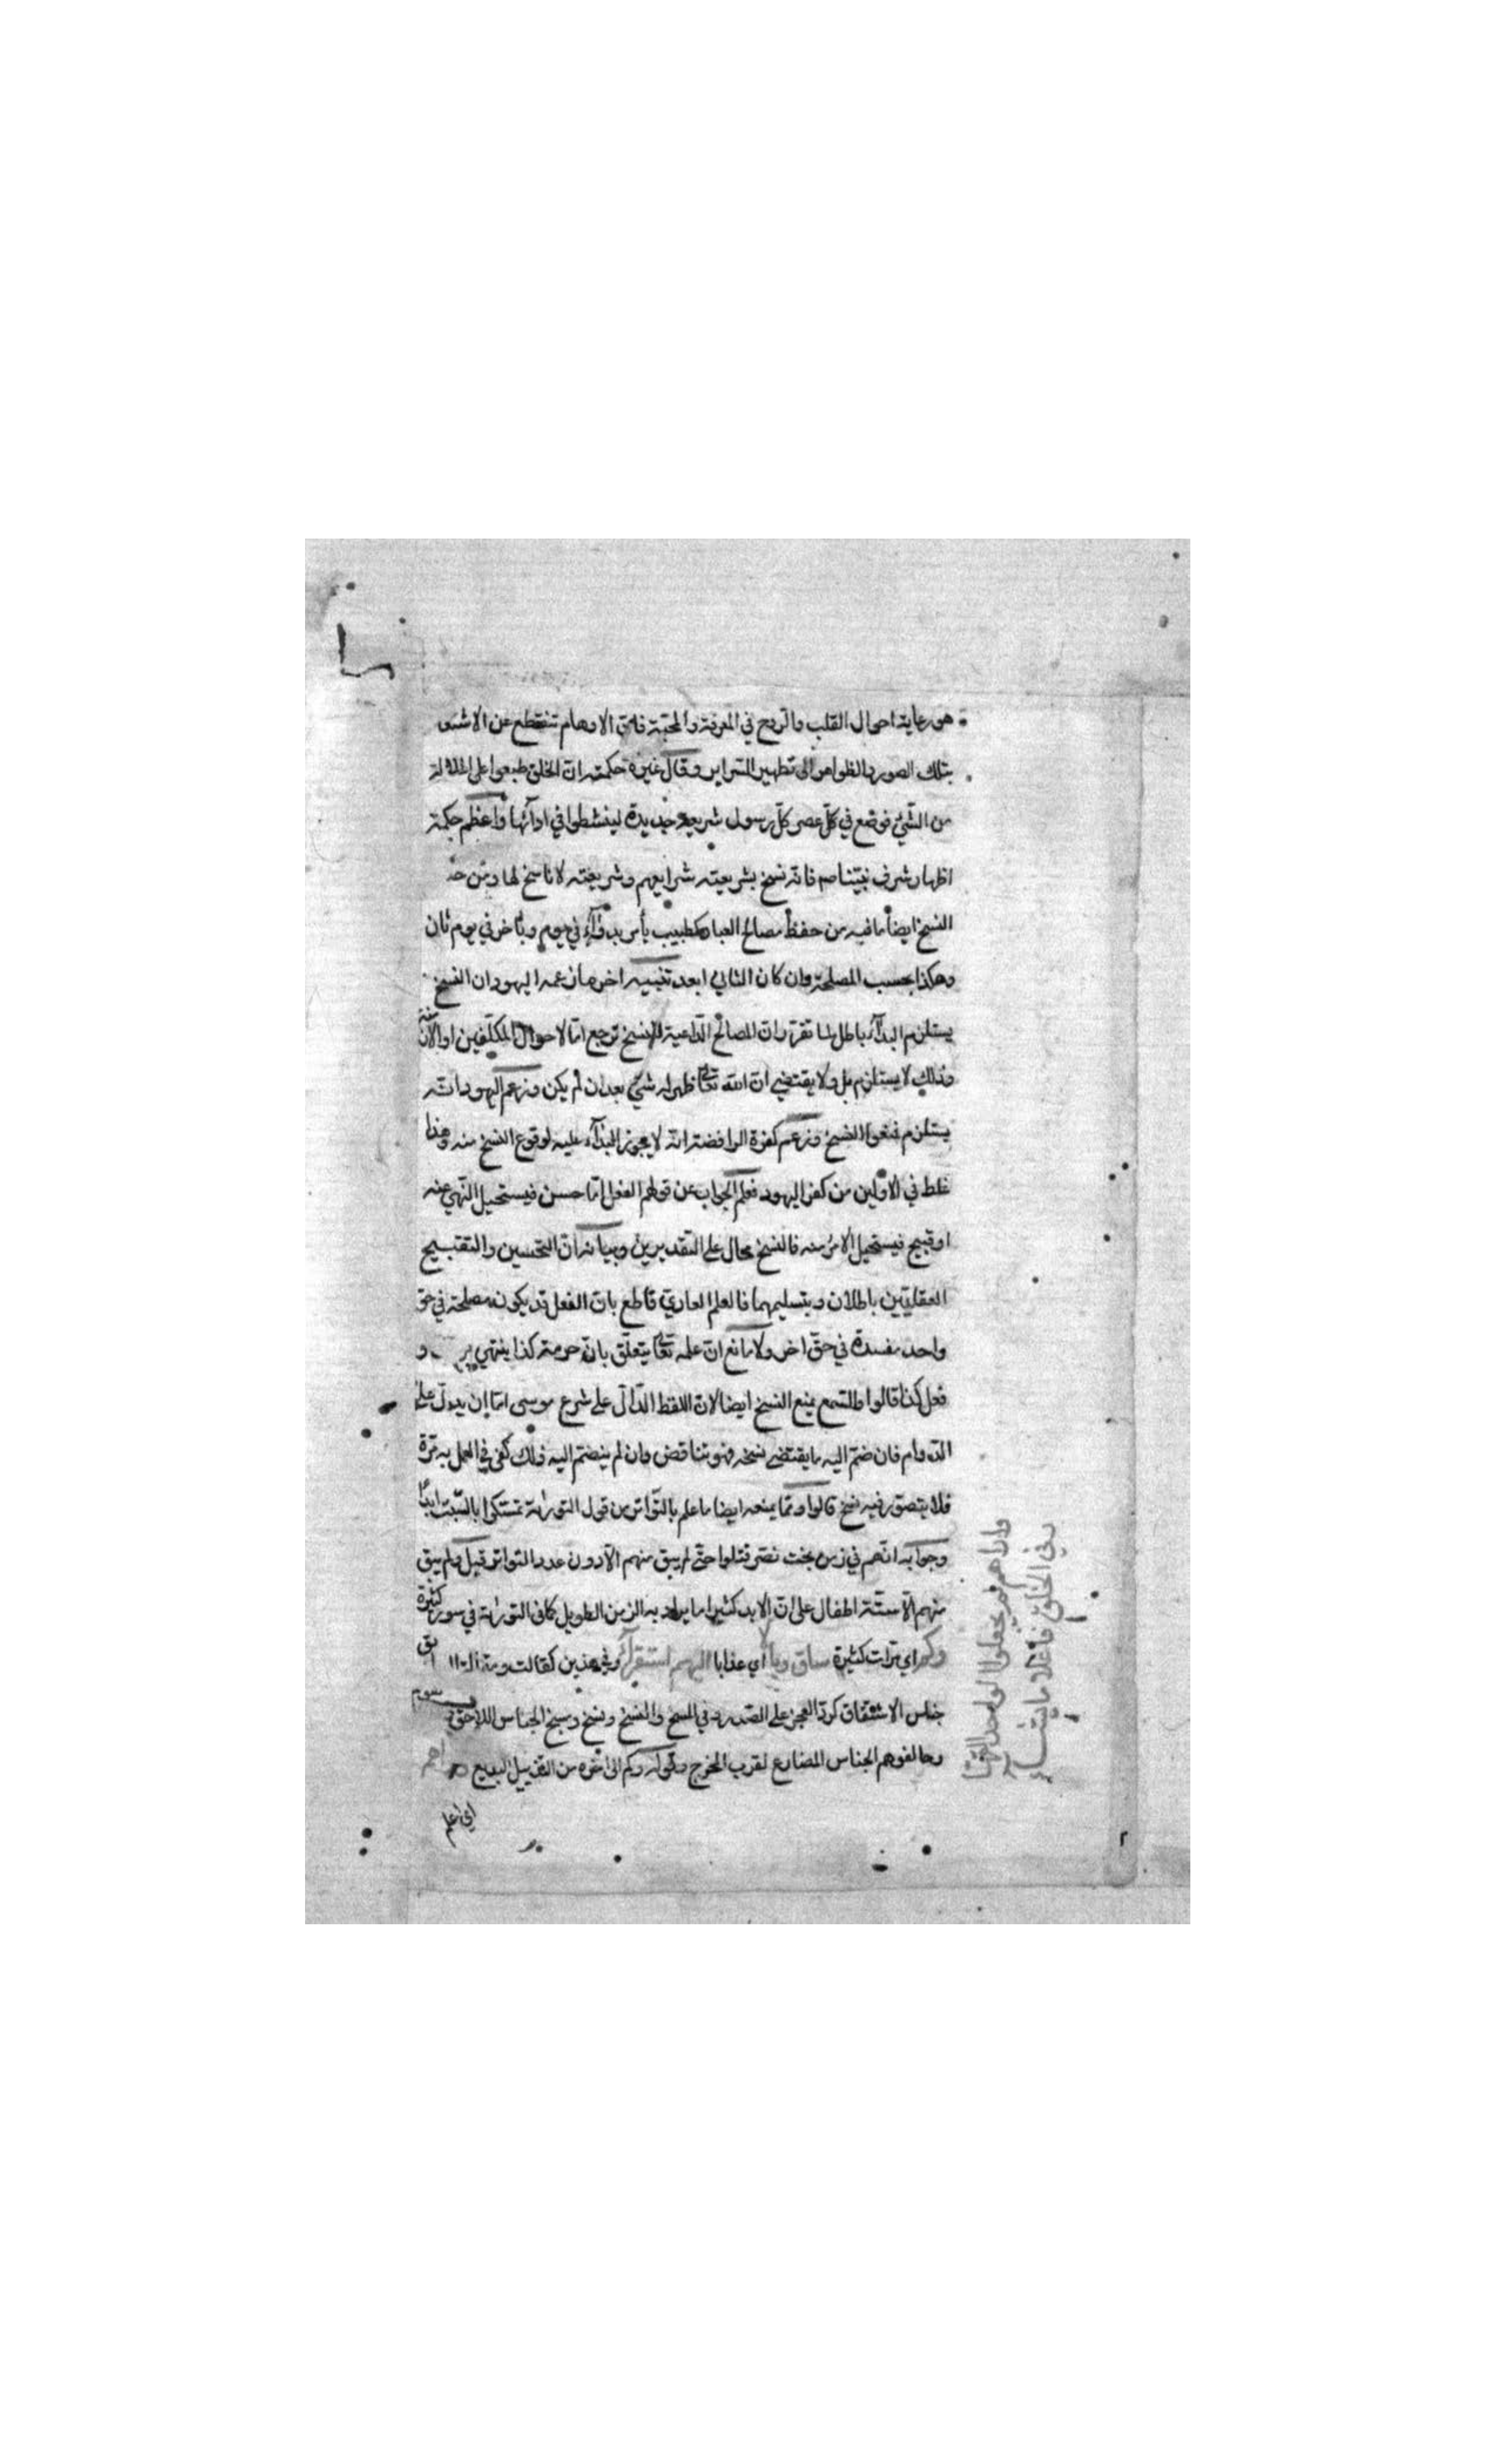 هو رعاية احوال القلب والروح في المعرفة والمحبة فان الاوهام تنقطع عن الاشتغال
بتلك الصور والظواهر الى تطهير السراير وقال غيره حكمته ان الخلق طبعوا على الملالة
من الشيء فوضع في كل عصر كل رسول شريعة جديدة لينشطوا في ادآئها واعظم حكمة
اظهار شرف نبينا صم فانه نسخ بشريعته شرايعهم وشريعته لا ناسخ لها ومن
النسخ ايضا ما فيه من حفظ مصالح العباد كطبيب يأمر بدوآء في يوم وبأخر في يوم ثان
وهكذا بحسب المصلحة وان كان الثاني ابعد تنبيه اخر ما زعمه اليهود ان النسخ
يستلزم البدآء باطل لما تقرر ان المصالح الداعية للنسخ ترجع اما لاحوال المكلفين او الازمنة
وذلك لا يستلزم بل ولا يقتضي ان الله تعالى ظهر له شيء بعد ان لم يكن وزعم اليهود انه
يستلزم فمنعوا النسخ وزعم كفرة الرافضة انه لا يجوز البدآء عليه لوقوع النسخ منه وهذا
غلط في الاولين من كفر اليهود فعلم الجواب عن قولهم الفعل اما حسن فيستحيل النهي عنه
او قبيح فيستحيل الامر منه فالنسخ محال على التقديرين وبيانه ان التحسين والتقبيح
العقليين باطلان وبتسليمهما فالعلم العادي قاطع بان الفعل قد يكون مصلحة في حق
واحد مفسدة في حق اخر ولا مانع ان علمه تعالى يتعلق بان حرمة كذا ينتهي
فعل كذا قالوا والسمع يمنع النسخ ايضا لان اللفظ الدال على شرع موسى اما ان يدل على
الدوام فان ضم اليه ما يقتضي نسخه فهو تناقض وان لم ينضم اليه ذلك كفى في العمل به مرة
فلا يتصور فيه نسخ قالوا ومما يمنعه ايضا ما علم بالتواتر من قول التوراة تمسكوا بالسبت ابدا
وجوابه انهم في زمن بخت نصر قتلوا حتى لم يبق منهم الا دون عدد التواتر قيل ولم يبق
منهم الا ستة اطفال على ان الابد كثيرا ما يراد به الزمن الطويل كما في التوراة في سور كثيرة
وكم اي مرات كثيرة ساق وبالا اي عذابا اليهم استقرآء وفي هذين كقالت
جناس الاشتقاق كرد العجز على الصدر في المسخ والنسخ ونسخ ومسخ الجناس اللاحق
وخالفوهم الجناس المضارع لقرب المخرج وقوله وكم الى اخره من التذييل البديع
اي اعلم
واراهم لم يجعلوا الواحد القها
ر في الخلق فاعلا ما يشآء